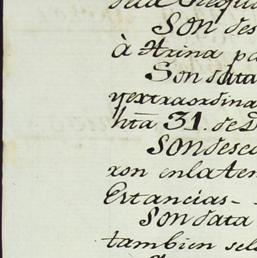 SON des
à Arina pa
Son data
yextraordina
hta 31. de D
SON desca
ron enlaten
Estancias--
SON data
tambien sele